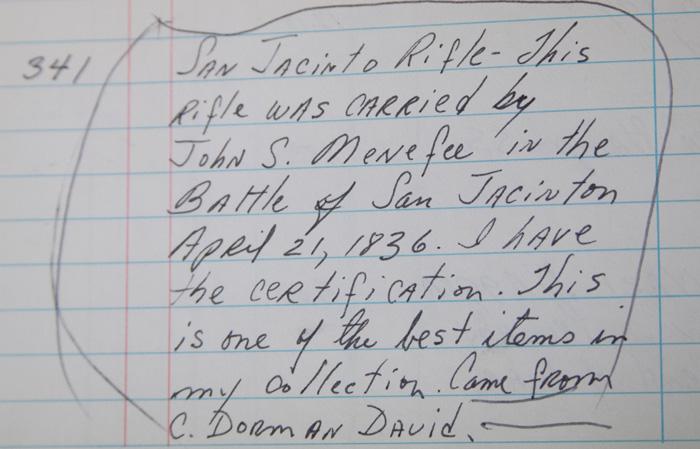 341 San Jacinto Rifle - This
Rifle was carried by
John S. Menefee in the
Battle of San Jacinton
April 21, 1836. I have
the certification. This
is one of the best items in
my collection. Came from
C. Dorman David.